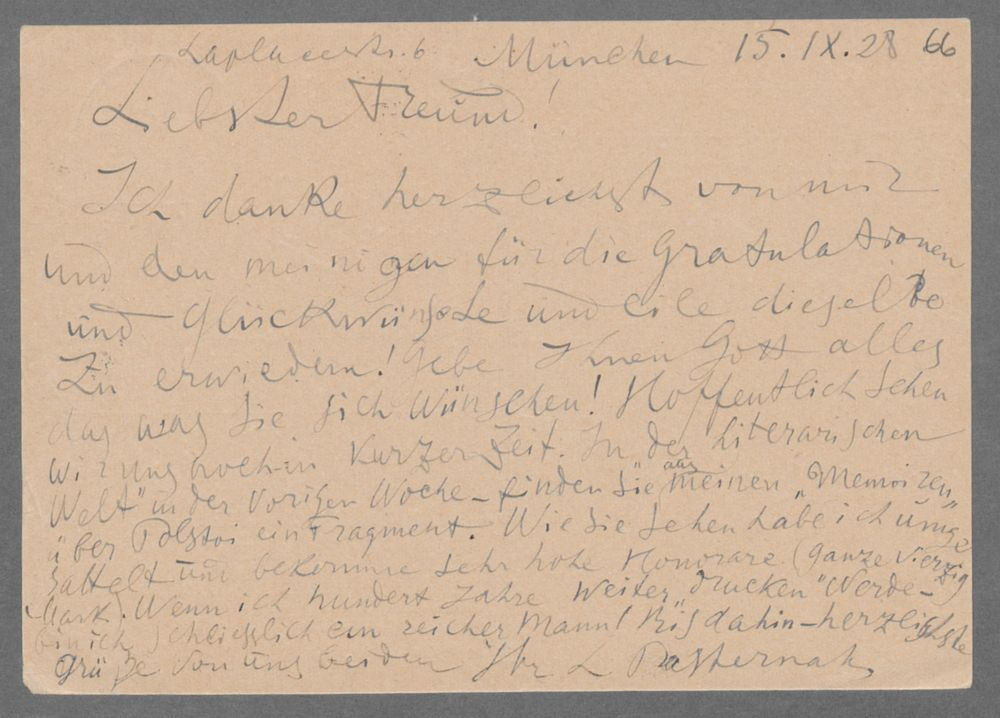 Laplacestr. 6 München 15. IX. 28 66
Liebster Freund!
Ich danke herzlichst von mir
und den meinigen für die Gratulationen
und Glückwünsche und eile dieselbe
zu erwiedern! Gebe Ihnen Gott alles
das was Sie sich wünschen! Hoffentlich sehen
wir uns noch in kurzer Zeit. In der Literarischen
Welt" in der vorigen Woche – finden Sie aus meinen „Memoiren"
über Tolstoi ein Fragment. Wie Sie sehen habe ich umge
sattelt und bekomme sehr hohe Honorare (ganze vierzig
Mark). Wenn ich hundert Jahre weiter „drucken" werde –
bin ich schliesslich ein reicher Mann! Bis dahin – herzlichste
Grüße von uns beiden Ihr L Pasternak